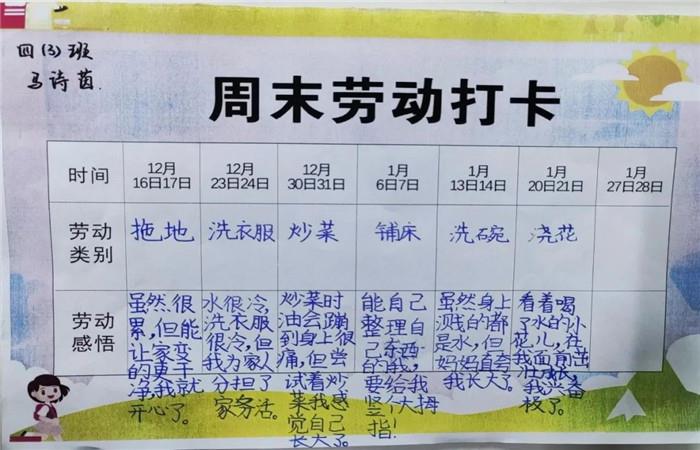 四(3)班
马诗茵.
周末劳动打卡
时间
12月
16日17日
12月
23日24日
12月
30日31日
1月
6日7日
1月
13日14日
1月
20日21日
1月
27日28日
劳动
类别
拖地
洗衣服
炒菜
铺床
洗碗
浇花
劳动
感悟
虽然很
累,但能
让家变
的更干
净,我就
开心了。
水很冷,
洗衣服
很冷,但
我为家人
分担了
家务活。
炒菜时
油会蹦
到身上很
痛,但尝
试着炒
菜我感
觉自己
长大了。
能自己
整理自
己东西
的我,
要给我
竖个大拇
指!
虽然身上
溅的都
是水,但
妈妈直夸
我长大了。
看着喝
了水的小
花儿,在
我面前
我兴奋
极了。